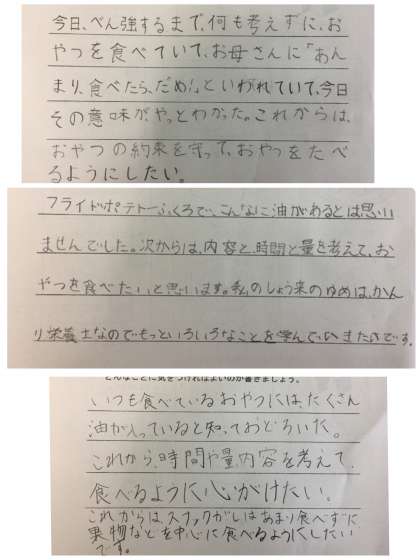 今日、べん強するまで、何も考えずに、お
やつを食べていて、お母さんに「あん
まり、食べたら、だめ!」といわれていて、今日
その意味が、やっとわかった。これからは、
おやつの約束を守って、おやつをたべ
るようにしたい。
フライドポテト一ふくろで、こんなに油があるとは思い
ませんでした。次からは、内容と、時間と量を考えて、お
やつを食べたいと思います。私のしょう来のゆめは、かん
り栄養士なのでもっといろいろなことを学んでいきたいです。
どんなことに気をつければよいのか書きましょう。
いつも食べているおやつには、たくさん
油が入っていると知っておどろいた。
これから、時間や量、内容を考えて、
食べるように心がけたい。
これからは、スナックがしはあまり食べずに
果物などを中心に食べるようにしたい
です。